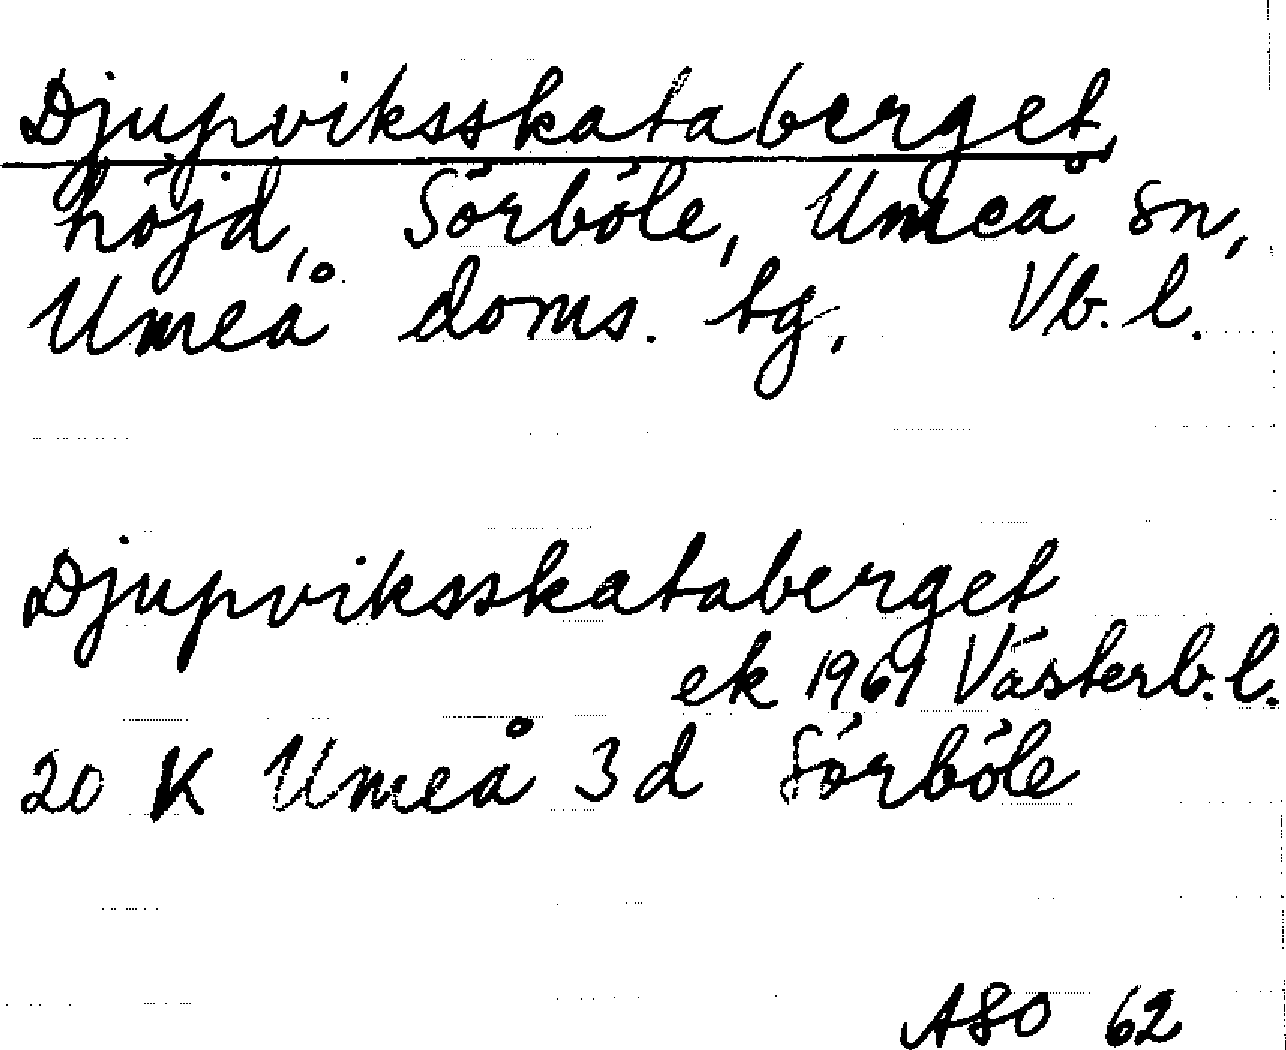 Djupviksskataberget,
höjd, Sörböle, Umeå sn,
Umeå doms. tg, Vb. l.
Djupviksskataberget
ek 1961 Västerb. l.
20 K Umeå 3 d Sörböle
ASO 62